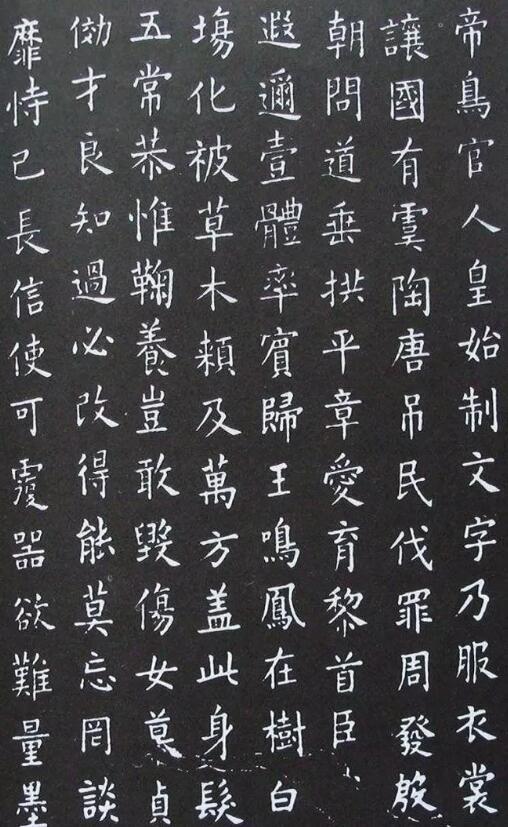 帝鳥官人皇始制文字乃服衣裳
讓國有虞陶唐吊民伐罪周發殷
朝問道垂拱平章愛育黎首臣
遐邇壹體率賓歸王鳴鳳在樹白
場化被草木頼及萬方盖此身髮
五常恭惟鞠養豈敢毀傷女慕貞
効才良知過必改得能莫忘罔談
靡恃己長信使可覆器欲難量墨